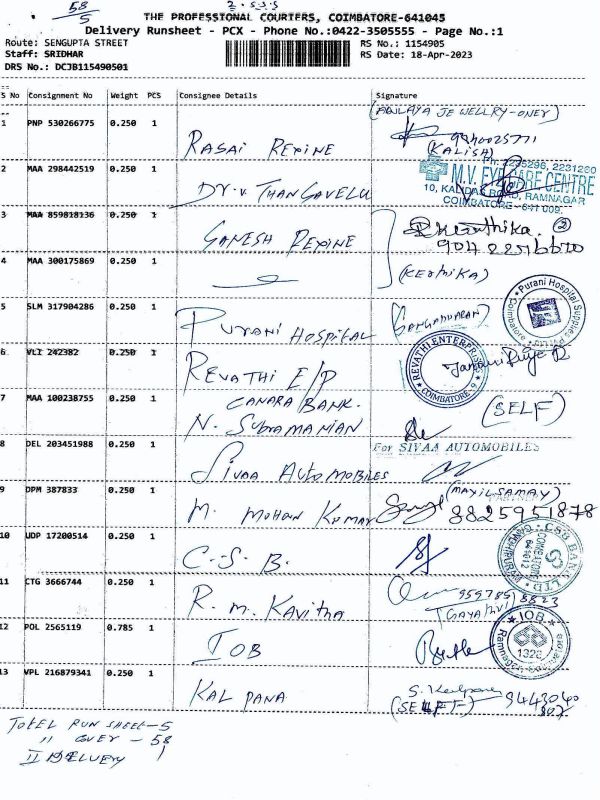 58/5
THE PROFESSIONAL COURIERS, COIMBATORE-641045
Delivery Runsheet - PCX - Phone No.:0422-3505555 - Page No.:1
Route: SENGUPTA STREET
RS No.: 1154905
Staff: SRIDHAR
RS Date: 18-Apr-2023
DRS No.: DCJB115490501
S No Consignment No Weight PCS Consignee Details Signature
1 PNP 530266775 0.250 1 RASAI REXINE
(KALISH)
2 MAA 298442519 0.250 1 Dr. V THANGAVELU
Ph: 2235296, 2231280
M.V. EYE CARE CENTRE
10, KALIDAS ROAD, RAMNAGAR
COIMBATORE - 641 009.
3 MAA 859818136 0.250 1 GANESH REXINE
4 MAA 300175869 0.250 1
(KERTHIKA)
5 SLM 317904286 0.250 1 PURANI HOSPITAL
Purani Hospital Supplies
Coimbatore
6 VLI 242382 0.250 1 REVATHI E/P
REVATHI ENTERPRISES
COIMBATORE 9
7 MAA 100238755 1 CANARA BANK.
N. SUBRAMANIAN
(SELF)
8 DEL 203451988 0.250 1 SIVAA AUTOMOBILES
For SIVAA AUTOMOBILES
9 DPM 387833 0.250 1 M. MOHAN KUMAR
(MAYILSAMY)
8825951878
10 UDP 17200514 0.250 1 C.S.B.
CSB BANK LTD
COIMBATORE
641012
11 CTG 3666744 0.250 1 R. M. KAVITHA
12 POL 2565119 0.785 1 IOB
IOB
Ramnagar, Coimbatore
13 VPL 216879341 0.250 1 KALPANA
(SELF)
TOTEL RUN SHEET - 5
11 COVER - 58
II DELUERY 1